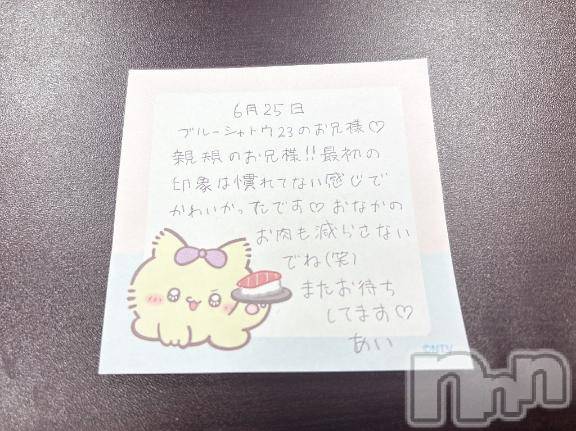 6月25日
ブルーシャトウ23のお兄様♡
親規のお兄様!!最初の
印象は慣れてない感じで
かわいかったです♡おなかの
お肉も減らさない
でね(笑)
またお待ち
してます♡
あい
©NTV
nnn